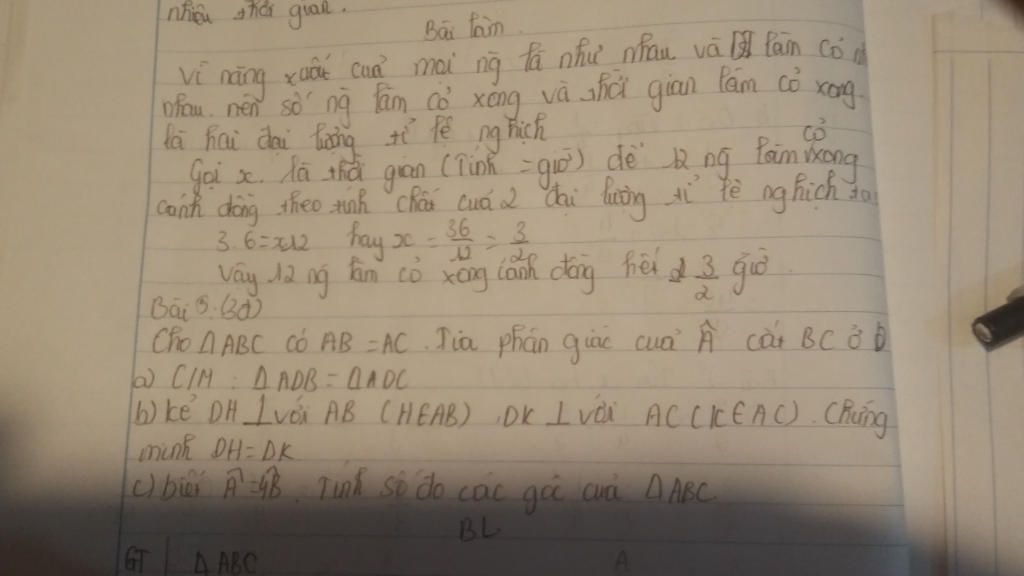 nhiêu thời gian.
Bài làm.
Vì năng xuất của mọi ng là như nhau và làm cỏ
nhau. nên số ng làm cỏ xong và thời gian làm cỏ xong.
là hai đại lượng tỉ lệ nghịch
Gọi x. là thời gian (Tính = giờ) để 12 ng làm cỏ xong
cánh đồng theo tính chất của 2 đại lượng tỉ lệ nghịch ta
3.6=x12 hay x = 36/12 = 3/2
Vậy 12 ng làm cỏ xong cánh đồng hết 3/2 giờ
Bài 5: (3đ)
Cho ΔABC có AB = AC. Tia phân giác của Â cắt BC ở D
a) C/M : ΔADB = ΔADC
b) kẻ DH ⊥ với AB (H∈AB). DK ⊥ với AC (K∈AC). Chứng
minh DH = DK
c) biết Â=4B̂. Tính số đo các góc của ΔABC
BL
GT | ΔABC A